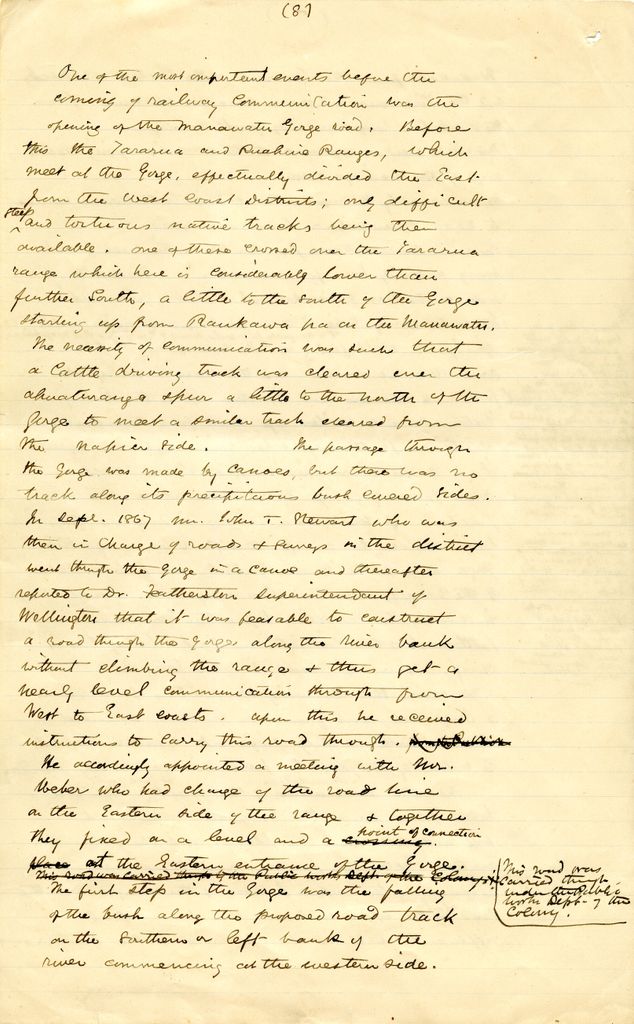 (8)
One of the most important events before the
coming of railway Communication was the
opening of the Manawatu Gorge road. Before
this the Tararua and Ruahine Ranges, which
meet at the Gorge, effectually divided the East
from the West Coast Districts; only difficult
steep
and tortuous native tracks being then
available. One of these crossed over the Tararua
range which here is considerably lower than
further South, a little to the South of the Gorge
starting up from Raukawa pa on the Manawatu.
The necessity of Communication was such that
a Cattle driving track was cleared over the
Ahuaturanga spur a little to the north of the
Gorge to meet a similar track cleared from
the Napier side. The passage through
the Gorge was made by Canoes, but there was no
track along its precipitous bush covered sides.
In Sept. 1867 Mr. John T. Stewart who was
then in Charge of roads & surveys in the district
went through the Gorge in a Canoe and thereafter
reported to Dr. Featherston Superintendent of
Wellington that it was feasable to construct
a road through the Gorge along the river bank
without climbing the range & thus get a
nearly level communication through from
West to East coasts. Upon this he received
instructions to carry this road through.
He accordingly appointed a meeting with Mr.
Weber who had charge of the road line
on the Eastern side of the range & together
point of connection
they fixed on a level and a crossing
place at the Eastern entrance of the Gorge.
This road was carried through by the Public Works Dept. of the Colony
The first step in the Gorge was the falling
of the bush along the proposed road track
on the Southern or left bank of the
river commencing at the western side.
This road was
carried through
under the Public
Works Dept. of the
Colony.